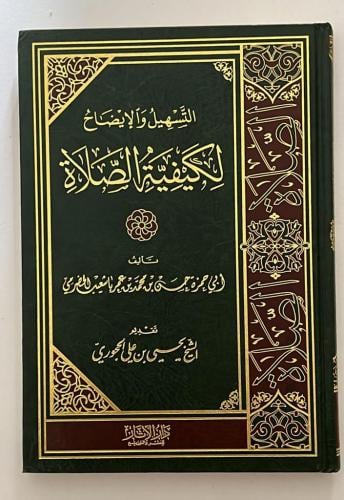 التسهيل والإيضاح
لكيفية الصلاة
تأليف
أبي حمزة حسن بن محمد بن عمر باشعيب الحضرمي
تقديم
الشيخ يحيى بن علي الحجوري
دار الآثار
للنشر والتوزيع
الصلاة
الصلاة